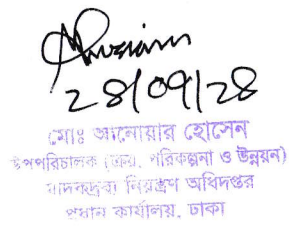 ২৪/০৭/২৪
মোঃ আনোয়ার হোসেন
উপপরিচালক (ক্রয়, পরিকল্পনা ও উন্নয়ন)
মাদকদ্রব্য নিয়ন্ত্রণ অধিদপ্তর
প্রধান কার্যালয়, ঢাকা